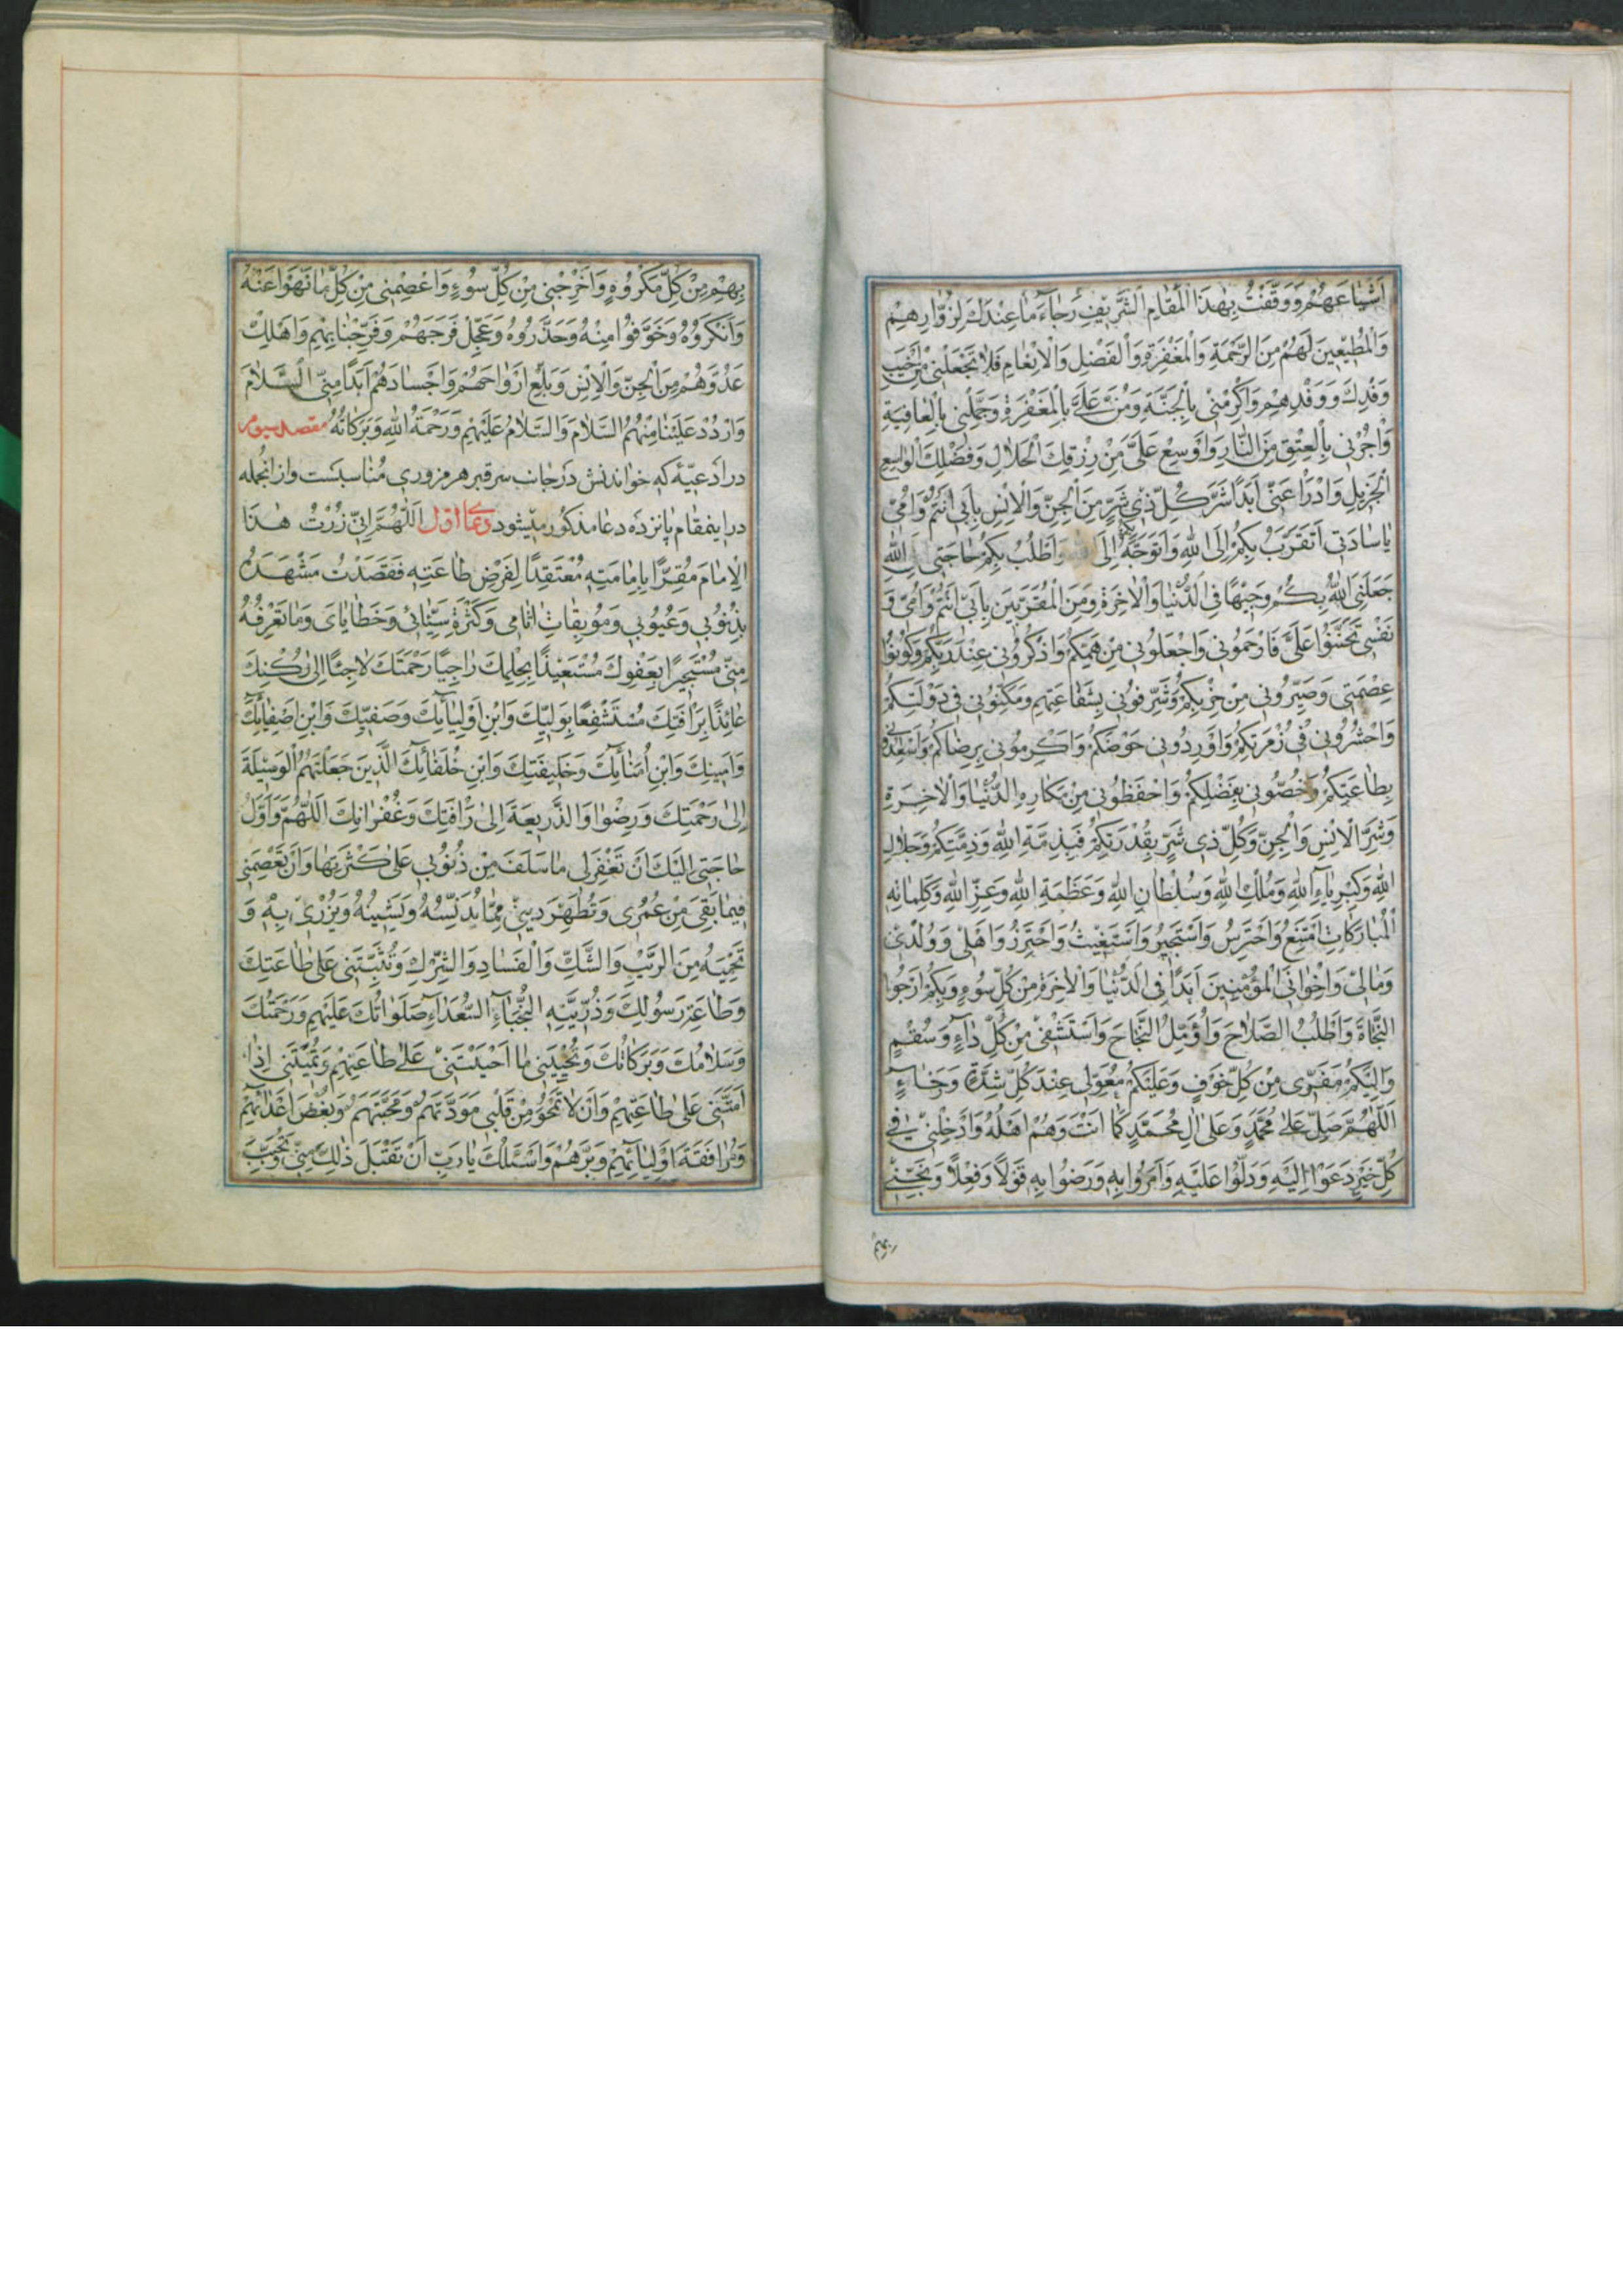 اَشْیاعَهُمْ وَوَقَفْتُ بِهٰذَا الْمَقامِ الشَّریفِ رَجاءَ ما عِنْدَكَ لِزُوّارِهِمْ
وَالْمُطیعینَ لَهُمْ مِنَ الرَّحْمَةِ وَالْمَغْفِرَةِ وَالْفَضْلِ وَالْاِنْعامِ فَلا تَجْعَلْنی مِنْ اَخْیَبِ
وَفْدِكَ وَوَفْدِهِمْ وَاَكْرِمْنی بِالْجَنَّةِ وَمُنَّ عَلَیَّ بِالْمَغْفِرَةِ وَجَمِّلْنی بِالْعافِیَةِ
وَاَجِرْنی بِالْعِتْقِ مِنَ النّارِ وَاَوْسِعْ عَلَیَّ مِنْ رِزْقِكَ الْحَلالِ وَفَضْلِكَ الْواسِعِ
الْجَزیلِ وَادْرَأْ عَنّی اَبَدًا شَرَّ كُلِّ ذی شَرٍّ مِنَ الْجِنِّ وَالْاِنْسِ بِاَبی اَنْتُمْ وَاُمّی
یا ساداتی اَتَقَرَّبُ بِكُمْ اِلَی اللهِ وَاَتَوَجَّهُ بِكُمْ اِلَی اللهِ وَاَطْلُبُ بِكُمْ حاجَتی اِلَی اللهِ
جَعَلَنِیَ اللهُ بِكُمْ وَجیهًا فِی الدُّنْیا وَالْاٰخِرَةِ وَمِنَ الْمُقَرَّبینَ بِاَبی اَنْتُمْ وَاُمّی وَ
نَفْسی تَحَنَّنُوا عَلَیَّ فَارْحَمُونی وَاجْعَلُونی مِنْ هَمِّكُمْ وَاذْكُرُونی عِنْدَ رَبِّكُمْ وَكُونُوا
عِصْمَتی وَصَیِّرُونی مِنْ حِزْبِكُمْ وَشَرِّفُونی بِشَفاعَتِهِمْ وَمَكِّنُونی فی دَوْلَتِكُمْ
وَاحْشُرُونی فی زُمْرَتِكُمْ وَاَوْرِدُونی حَوْضَكُمْ وَاَكْرِمُونی بِرِضاكُمْ وَاَسْعِدُونی
بِطاعَتِكُمْ وَخُصُّونی بِفَضْلِكُمْ وَاحْفَظُونی مِنْ مَكارِهِ الدُّنْیا وَالْاٰخِرَةِ
وَشَرَّ الْاِنْسِ وَالْجِنِّ وَكُلِّ ذی شَرٍّ بِقُدْرَتِكُمْ فَبِذِمَّةِ اللهِ وَذِمَّتِكُمْ وَجَلالِ
اللهِ وَكِبْرِیاءِ اللهِ وَمُلْكِ اللهِ وَسُلْطانِ اللهِ وَعَظَمَةِ اللهِ وَعِزِّ اللهِ وَكَلِماتِهِ
الْمُبارَكاتِ اَمْتَنِعُ وَاَحْتَرِسُ وَاَسْتَجیرُ وَاَسْتَغیثُ وَاَحْتَرِزُ وَاَهْلی وَوُلْدی
وَمالی وَاِخْوانِیَ الْمُؤْمِنینَ اَبَدًا فِی الدُّنْیا وَالْاٰخِرَةِ مِنْ كُلِّ سُوءٍ وَبِكُمْ اَرْجُوا
النَّجاةَ وَاَطْلُبُ الصَّلاحَ وَاُؤَمِّلُ النَّجاحَ وَاَسْتَشْفی مِنْ كُلِّ داءٍ وَسُقْمٍ
وَاِلَیْكُمْ مَفَرّی مِنْ كُلِّ خَوْفٍ وَعَلَیْكُمْ مُعَوَّلی عِنْدَ كُلِّ شِدَّةٍ وَرَخاءٍ
اَللّٰهُمَّ صَلِّ عَلٰی مُحَمَّدٍ وَعَلٰی اٰلِ مُحَمَّدٍ كَما اَنْتَ وَهُمْ اَهْلُهُ وَاَدْخِلْنی فی
كُلِّ خَیْرٍ دَعَوْا اِلَیْهِ وَدَلُّوا عَلَیْهِ وَاَمَرُوا بِهِ وَرَضُوا بِهِ قَوْلًا وَفِعْلًا وَنَجِّنی
بهم
بِهِمْ مِنْ كُلِّ مَكْرُوهٍ وَاَخْرِجْنی مِنْ كُلِّ سُوءٍ وَاعْصِمْنی مِنْ كُلِّ ما نَهَوْا عَنْهُ
وَاَنْكَرُوهُ وَخَوَّفُوا مِنْهُ وَحَذَّرُوهُ وَعَجِّلْ فَرَجَهُمْ وَفَرِّجْنا بِهِمْ وَاَهْلِكْ
عَدُوَّهُمْ مِنَ الْجِنِّ وَالْاِنْسِ وَبَلِّغْ اَرْواحَهُمْ وَاَجْسادَهُمْ اَبَدًا مِنِّی السَّلامَ
وَارْدُدْ عَلَیْنا مِنْهُمُ السَّلامَ وَالسَّلامُ عَلَیْهِمْ وَرَحْمَةُ اللهِ وَبَرَكاتُهُ مقصد سیوم
در ادعیّهٔ که خواندنش در جانب سر قبر هر مزوری مناسبست و از انجمله
در اینمقام پانزده دعا مذکور میشود دعای اول اَللّٰهُمَّ اِنّی زُرْتُ هٰذَا
الْاِمامَ مُقِرًّا بِاِمامَتِهِ مُعْتَقِدًا لِفَرْضِ طاعَتِهِ فَقَصَدْتُ مَشْهَدَهُ
بِذُنُوبی وَعُیُوبی وَمُوبِقاتِ اٰثامی وَكَثْرَةِ سَیِّئاتی وَخَطایایَ وَما تَعْرِفُهُ
مِنّی مُسْتَجیرًا بِعَفْوِكَ مُسْتَعیذًا بِحِلْمِكَ راجِیًا رَحْمَتَكَ لاجِئًا اِلٰی رُكْنِكَ
عائِذًا بِرَأْفَتِكَ مُسْتَشْفِعًا بِوَلِیِّكَ وَابْنِ اَوْلِیائِكَ وَصَفِیِّكَ وَابْنِ اَصْفِیائِكَ
وَاَمینِكَ وَابْنِ اُمَنائِكَ وَخَلیفَتِكَ وَابْنِ خُلَفائِكَ الَّذینَ جَعَلْتَهُمُ الْوَسیلَةَ
اِلٰی رَحْمَتِكَ وَرِضْوا وَالذَّریعَةَ اِلٰی رَأْفَتِكَ وَغُفْرانِكَ اَللّٰهُمَّ وَاَوَّلُ
حاجَتی اِلَیْكَ اَنْ تَغْفِرَ لی ما سَلَفَ مِنْ ذُنُوبی عَلٰی كَثْرَتِها وَاَنْ تَعْصِمَنی
فیما بَقِیَ مِنْ عُمْری وَتُطَهِّرَ دینی مِمّا یُدَنِّسُهُ وَیَشینُهُ وَیُزْری بِهِ وَ
تَحْمِیَهُ مِنَ الرَّیْبِ وَالشَّكِّ وَالْفَسادِ وَالشِّرْكِ وَتُثَبِّتَنی عَلٰی طاعَتِكَ
وَطاعَةِ رَسُولِكَ وَذُرِّیَّتِهِ النُّجَباءِ السُّعَداءِ صَلَواتُكَ عَلَیْهِمْ وَرَحْمَتُكَ
وَسَلامُكَ وَبَرَكاتُكَ وَتُحْیِیَنی ما اَحْیَیْتَنی عَلٰی طاعَتِهِمْ وَتُمیتَنی اِذا
اَمَتَّنی عَلٰی طاعَتِهِمْ وَاَنْ لا تَمْحُوَ مِنْ قَلْبی مَوَدَّتَهُمْ وَمَحَبَّتَهُمْ وَبُغْضَ اَعْدائِهِمْ
وَمُرافَقَةَ اَوْلِیائِهِمْ وَبِرَّهُمْ وَاَسْئَلُكَ یا رَبِّ اَنْ تَقْبَلَ ذٰلِكَ مِنّی وَتُحَبِّبَ